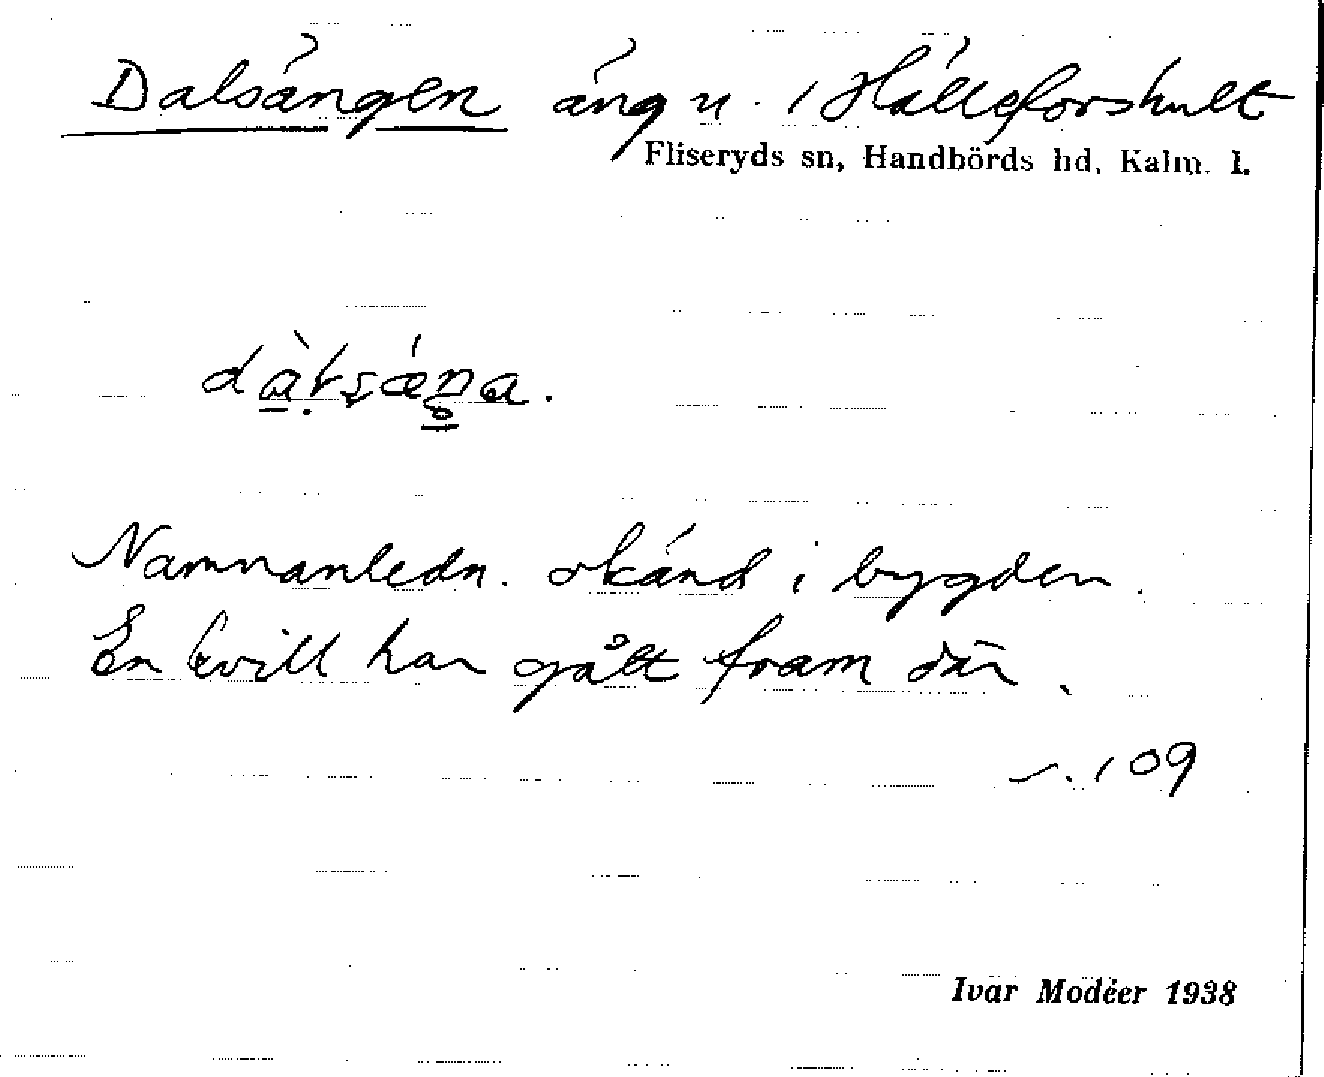 Dalsängen äng n. i Hälleforshult
Fliseryds sn, Handbörds hd, Kalm. l.
Namnanledn. okänd i bygden.
En kvill har gått fram där.
s. 109
Ivar Modéer 1938